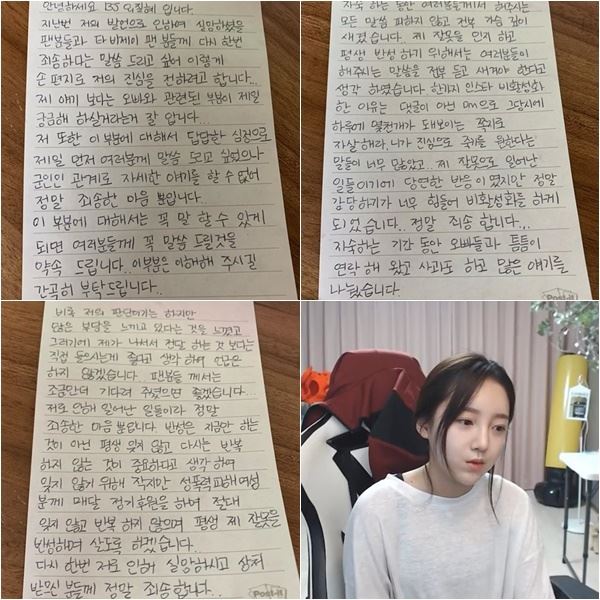 안녕하세요 BJ 입니다.
지난번 저의 발언으로 인하여 실망하셨을
팬분들과 타 비제이 팬 분들께 다시 한번
죄송하다는 말씀 드리고 싶어 이렇게
손 편지로 저의 진심을 전하려고 합니다..
제 얘기 보다는 오빠와 관련된 부분이 제일
궁금해 하실거라는걸 잘 압니다..
저 또한 이 부분에 대해서 답답한 심정으로
제일 먼저 여러분들께 말씀 드리고 싶었으나
군인인 관계로 자세한 얘기를 할 수 없어
정말 죄송한 마음 뿐입니다.
이 부분에 대해서는 꼭 말 할 수 있게
되면 여러분들께 꼭 말씀 드릴것을
약속 드립니다.. 이부분은 이해해 주시길
간곡히 부탁드립니다..
자숙 하는 동안 여러분들께서 해주시는
모든 말씀 피하지 않고 전부 가슴 깊이
새겼습니다. 제 잘못을 인지 하고
평생 반성 하기 위해서는 여러분들이
해주시는 말씀을 전부 듣고 새겨야 한다고
생각 하였습니다 한가지 인스타 비활성화
한 이유는 댓글이 아닌 DM으로 그당시에
하루에 몇천개가 돼보이는 쪽지로
자살해라, 니가 진심으로 죽기를 원한다는
말들이 너무 많았고... 제 잘못으로 일어난
일들이기에 당연한 반응 이였지만 정말
감당하기가 너무 힘들어 비활성화를 하게
되었습니다.. 정말 죄송 합니다...
자숙하는 기간 동안 오빠들과 틈틈이
연락 해 왔고 사과도 하고 많은 얘기를
나눴습니다.
Post-it
비록 저의 판단이기는 하지만
많은 부담을 느끼고 있다는 것을 느꼈고
그러기에 제가 나서서 전달 하는 것 보다는
직접 들으시는게 좋다고 생각 하여 언급은
하지 않겠습니다. 팬분들 께서는
조금만 더 기다려 주셨으면 좋겠습니다...
저로 인해 일어난 일들이라 정말
죄송한 마음 뿐입니다. 반성은 지금만 하는
것이 아닌 평생 잊지 않고 다시는 반복
하지 않는 것이 중요하다고 생각 하여
잊지 않기 위해 작지만 성폭력피해여성
분께 매달 정기후원을 하며 절대
잊지 않고 반복 하지 않으며 평생 제 잘못을
반성하며 살도록 하겠습니다..
다시 한번 저로 인해 실망하시고 상처
받으신 분들께 정말 죄송합니다..
Post-it